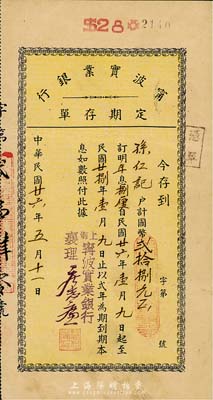 $28
2140
甯波實業銀行
定期存單
今存到
孫仁記 戶計國幣貳拾捌元正
字第 號
訂明年息捌厘自民國廿六年壹月九日起至
民國廿捌年壹月九日止以弍年為期到期本
息如數照付此據
上海甯波實業銀行
襄理
中華民國廿六年五月十一日